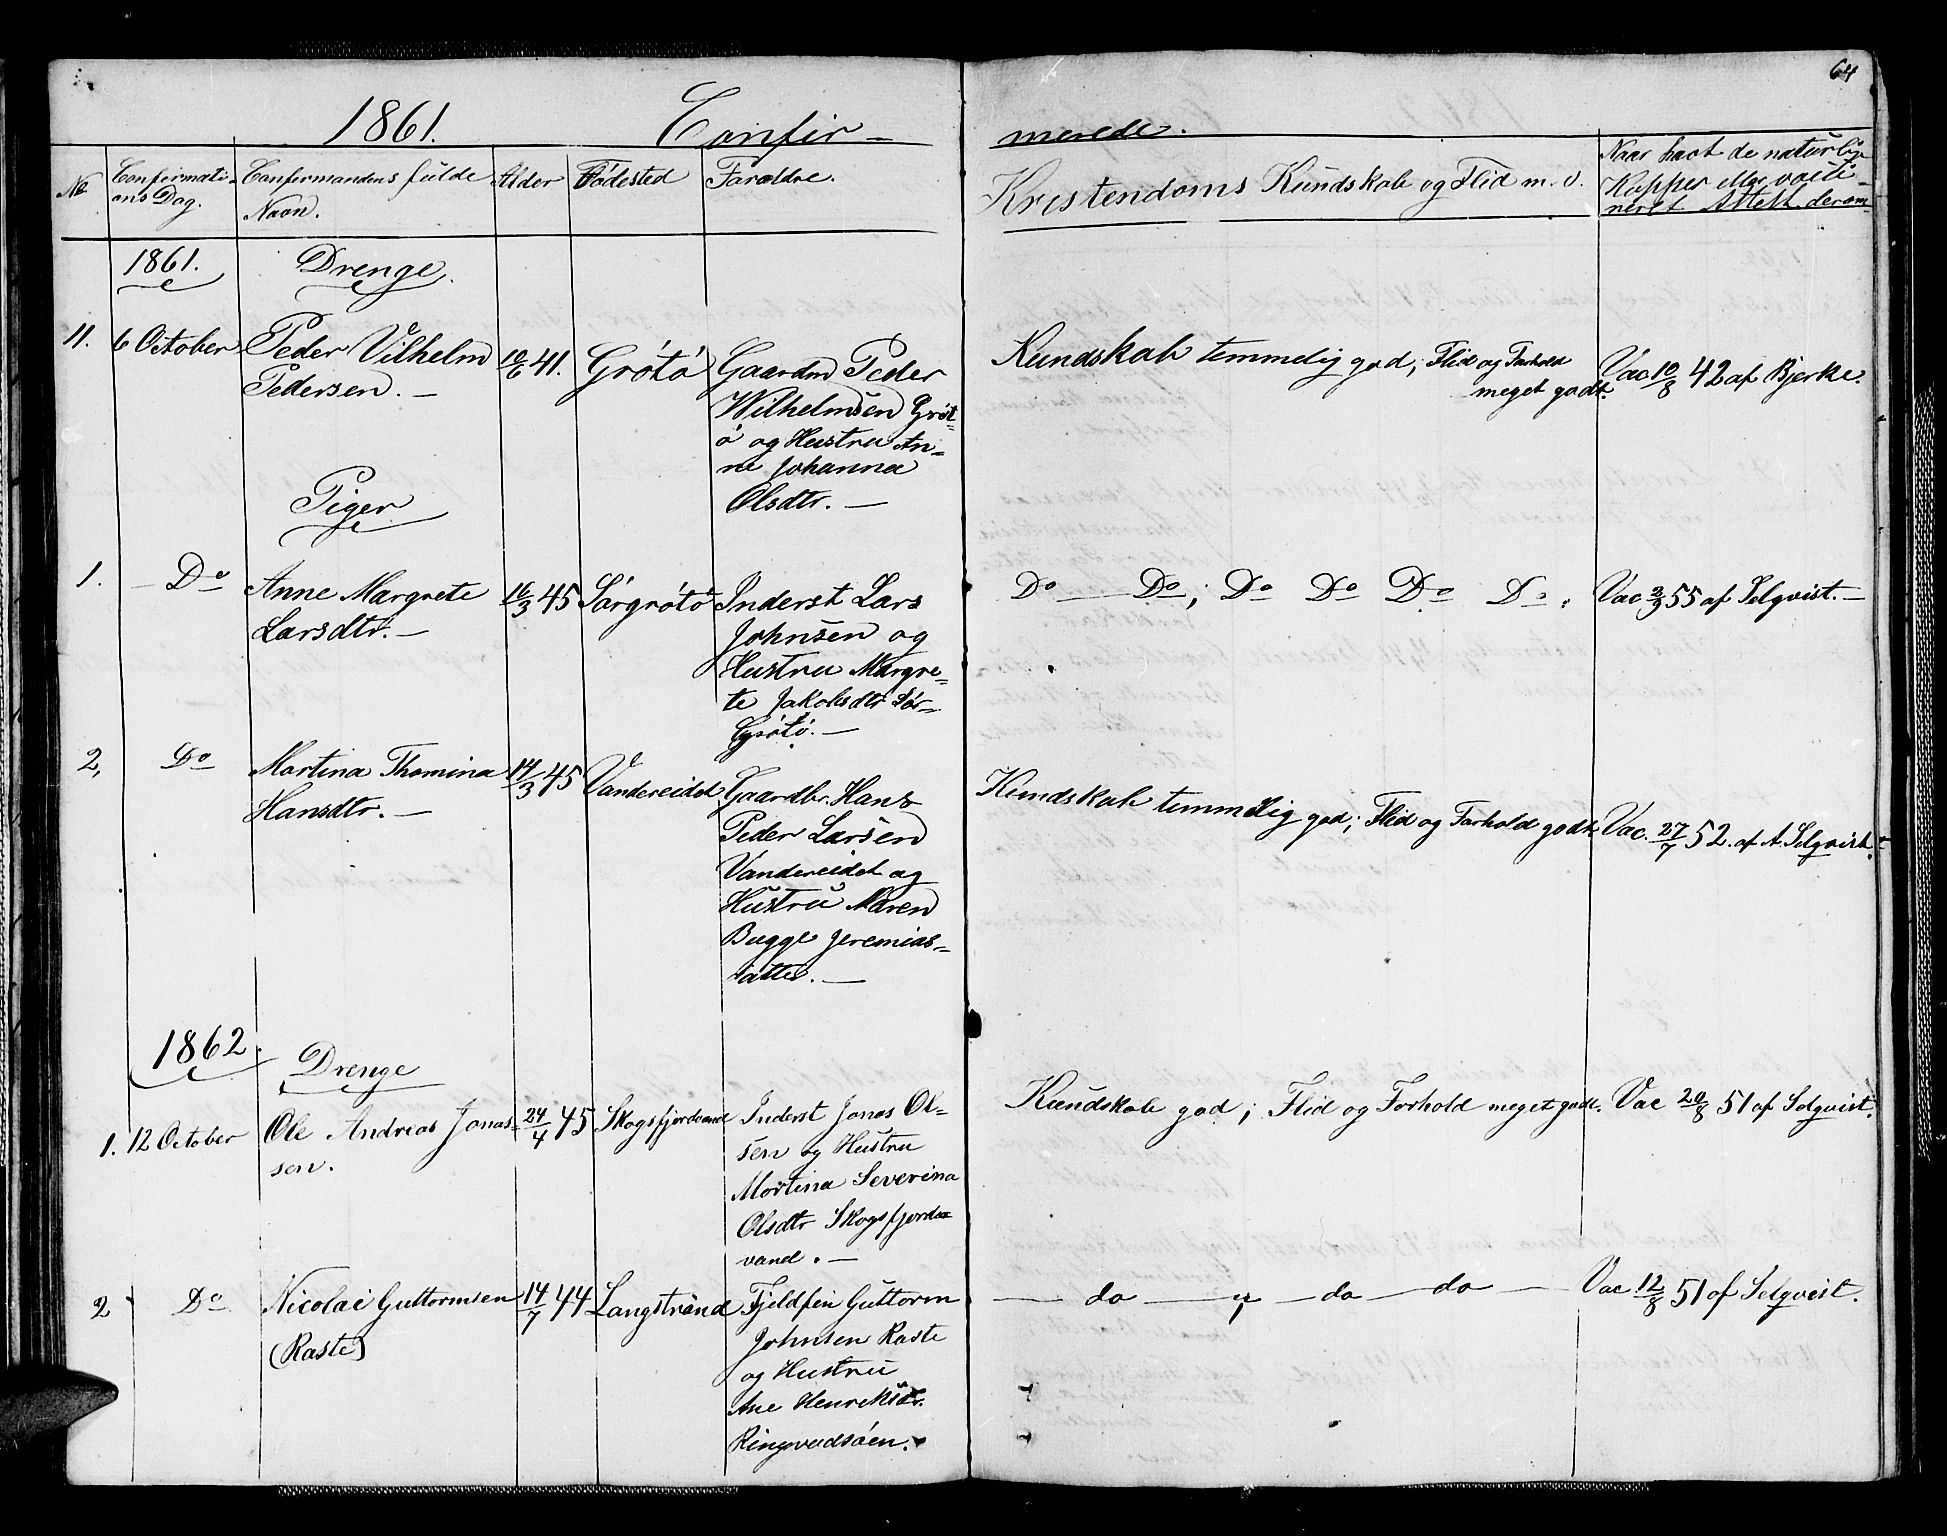 64
1861. Confir-
merede.
No
Confirmati-
ons Dag.
Confirmandens fulde
Navn.
Alder
Födested
Foræeldre.
Kristendoms Kundskab og Flid m. v.
Naar havt de naturlige
Kopper eller vacci-
neret. Attest derom
1861.
Drenge.
11. 6 October Peder Vilhelm 10/6 41. Grötö Gaardm Peder Kundskab temmelig god; Flid og Forhold Vac 10/8 42 af Bjerke.
Pedersen. - Wilhelmsen Gröt= meget godt.
ö og Hustru An=
ne Johanna
Olsdtr. -
Piger
1. Do Anne Margrete 16/3 45 Sörgrötö Inderst Lars Do Do; Do Do Do Do. Vac 2/9 55 af Selqvist. -
Larsdtr. - Johnsen og
Hustru Margre=
te Jakobsdtr Sör=
Grötö. -
2, Do Martina Thomina 14/3 45 Vandereidet Gaardbr. Hans Kundskab temmelig god; Flid og Forhold godt. Vac. 27/7 52. af A. Selqvist.
Hansdtr. - Peder Larsen
Vandereidet og
Hustru Maren
Bugge Jeremias=
datter. -
1862.
Drenge
1. 12 October Ole Andreas Jonas= 24/4 45 Skogsfjordvand Inderst Jonas Ol= Kundskab god; Flid og Forhold meget godt. Vac 20/8 51 af Selqvist.
sen. sen og Hustru
Martina Severina
Olsdtr Skogsfjord=
vand. -
2 Do Nicolai Guttormsen 14/7 44 Langstrand Fjeldfin Guttorm - do - ; - do - do - Vac 12/8 51 af Selqvist.
(Raste) Johnsen Raste
og Hustru
Ane Henriksdr.
Ringvadsöen.